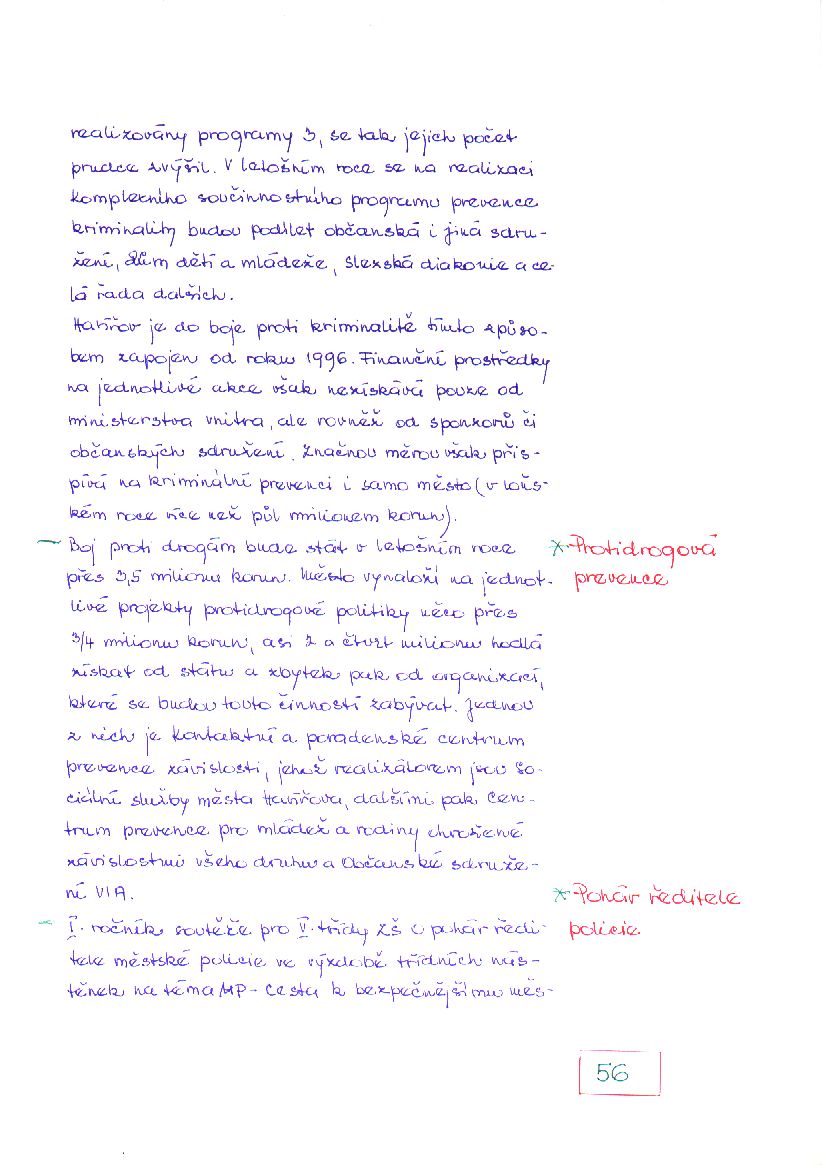 realizovány programy 3, se tak jejich počet
prudce zvýšil. V letošním roce se na realizaci
komplexního součinnostního programu prevence
kriminality budou podílet občanská i jiná sdru-
žení, Dům dětí a mládeže, Slezská diakonie a ce-
lá řada dalších.
Havířov je do boje proti kriminalitě tímto způso-
bem zapojen od roku 1996. Finanční prostředky
na jednotlivé akce však nezískává pouze od
ministerstva vnitra, ale rovněž od sponzorů či
občanských sdružení. Značnou měrou však přis-
pívá na kriminální prevenci i samo město (v loňs-
kém roce více než půl milionem korun).
– Boj proti drogám bude stát v letošním roce
přes 3,5 milionu korun. Město vynaloží na jednot-
livé projekty protidrogové politiky něco přes
3/4 milionu korun, asi 2 a čtvrt milionu hodlá
získat od státu a zbytek pak od organizací,
které se budou touto činností zabývat. Jednou
z nich je Kontaktní a poradenské centrum
prevence závislosti, jehož realizátorem jsou So-
ciální služby města Havířova, dalšími pak Cen-
trum prevence pro mládež a rodiny ohrožené
závislostmi všeho druhu a Občanské sdruže-
ní VIA.
– I. ročník soutěže pro V. třídy ZŠ o pohár ředi-
tele městské policie ve výzdobě třídních nás-
těnek na téma MP - Cesta k bezpečnějšímu měs-
* Protidrogová
prevence
* Pohár ředitele
policie
56